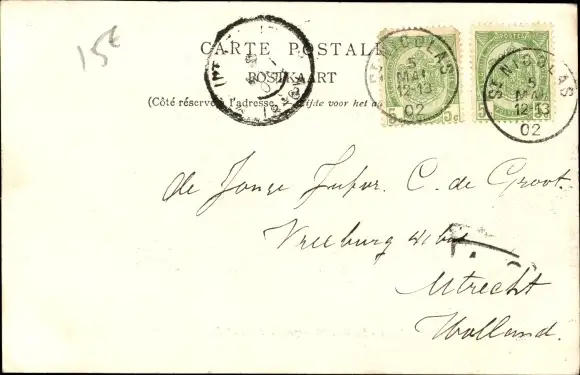 15€
CARTE POSTALE
POSTKAART
(Côté réservé à l'adresse. Zijde voor het
ST NICOLAS
5
MAI
12-13
02
ST NICOLAS
5
MAI
12-13
02
de Jonge Jufvr. C. de Groot.
Vreeburg
Utrecht
Holland.